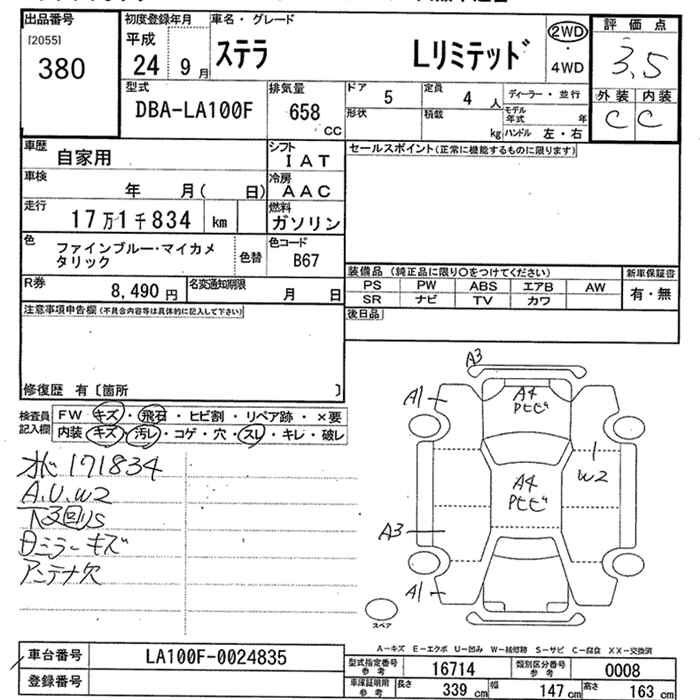 出品番号 初度登録年月 車名・グレード 評価点
[2055] 平成 ステラ Lリミテッド 2WD
380 24 9月 ・ 3.5
4WD
型式 排気量 ドア 定員 ディーラー・並行 外装 内装
DBA-LA100F 658 5 4人 モデル年式 年 C C
CC 形状 積載 kg ハンドル 左・右
車歴 自家用 シフト IAT セールスポイント(正常に機能するものに限ります)
車検 年 月( 日) 冷房 AAC
走行 17万1千834 km 燃料 ガソリン
色 ファインブルー・マイカメタリック 色替 色コード B67
装備品(純正品に限り○をつけてください) 新車保証書
R券 8,490円 名変通知期限 月 日 PS PW ABS エアB AW 有・無
SR ナビ TV カワ
注意事項申告欄(不具合内容等は具体的に記入して下さい) 後日品
修復歴 有〔箇所 〕
A3
検査員記入欄 FW キズ・飛石・ヒビ割・リペア跡・×要
内装 キズ・汚レ・コゲ・穴・スレ・キレ・破レ
A1 A4
171834
A.U.W2 W2
A4
キズ A3
アンテナ欠 A1
スペア
A-キズ E-エクボ U-凹み W-補修跡 S-サビ C-腐食 XX-交換済
車台番号 LA100F-0024835 型式指定番号参考 16714 類別区分番号参考 0008
登録番号 車庫証明用参考 長さ 339cm 幅 147cm 高さ 163cm